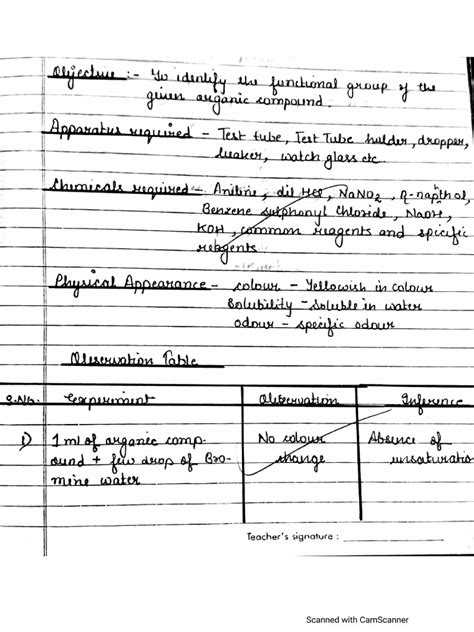 Objective :- To identify the functional group of the
given organic compound.
Apparatus required - Test tube, Test Tube holder, dropper,
beaker, watch glass etc.
Chemicals required - Aniline, dil HCl, NaNO2, η-napthol,
Benzene sulphonyl Chloride, NaOH,
KOH, common reagents and specific
reagents.
Physical Appearance - colour - Yellowish in colour
Solubility - soluble in water
odour - specific odour
Observation Table
S.No. Experiment Observation Inference
1) 1 ml of organic comp- No colour Absence of
ound + few drop of Bro- change unsaturatio
mine water
Teacher's signature :
Scanned with CamScanner